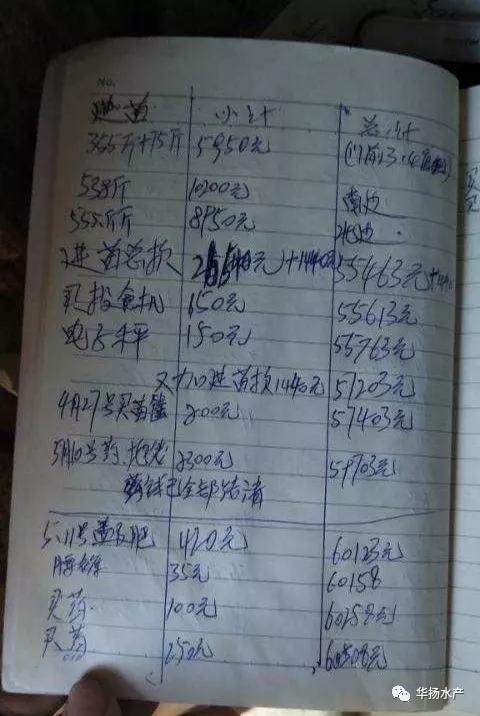 No.
进苗 小计 总计
355斤+75斤 5950元
538斤 10200元 南边
535斤 8950元 北边
进苗总款 +1440元 55463元
买投食机 150元 55613元
电子秤 150元 55763元
又加进苗款1440元 57203元
4月27号买苗 200元 57403元
5月10号药 2300元 59703元
钱已全部结清
5.11号 肥 420元 60123元
35元 60158
买药 100元 60258元
买药 250元 60508元
华扬水产